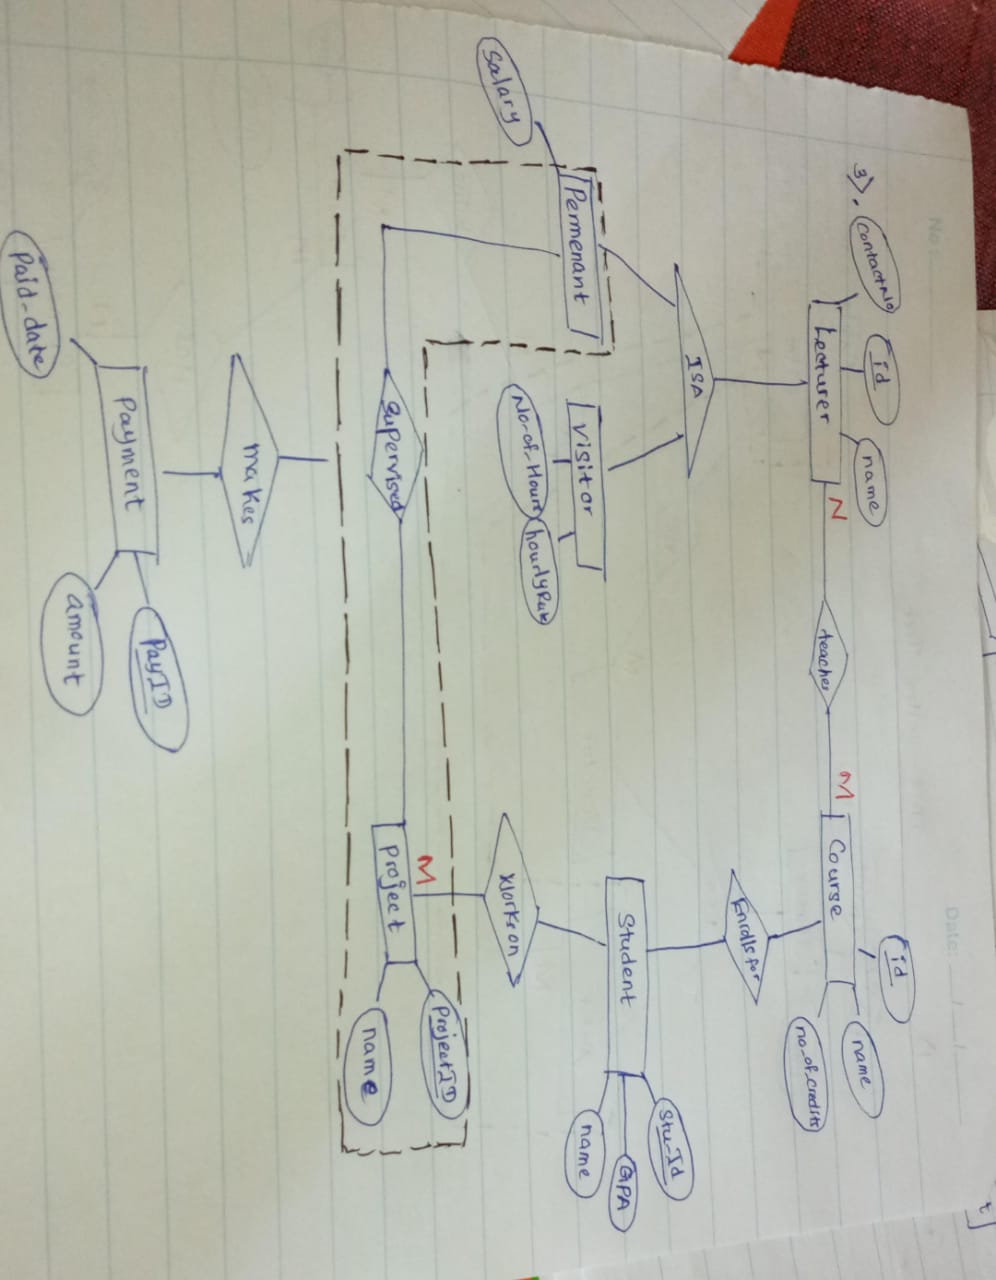 No:
Date: / /
3).
ContactNo
id
name
Lecturer
N
teaches
M
Course
id
name
no_of_credits
Enrolls for
ISA
Student
Stu-Id
GPA
name
Permenant
Salary
Visitor
No-of-Hours
Works on
Supervised
M
Project
ProjectID
name
makes
Payment
PayID
amount
Paid-date